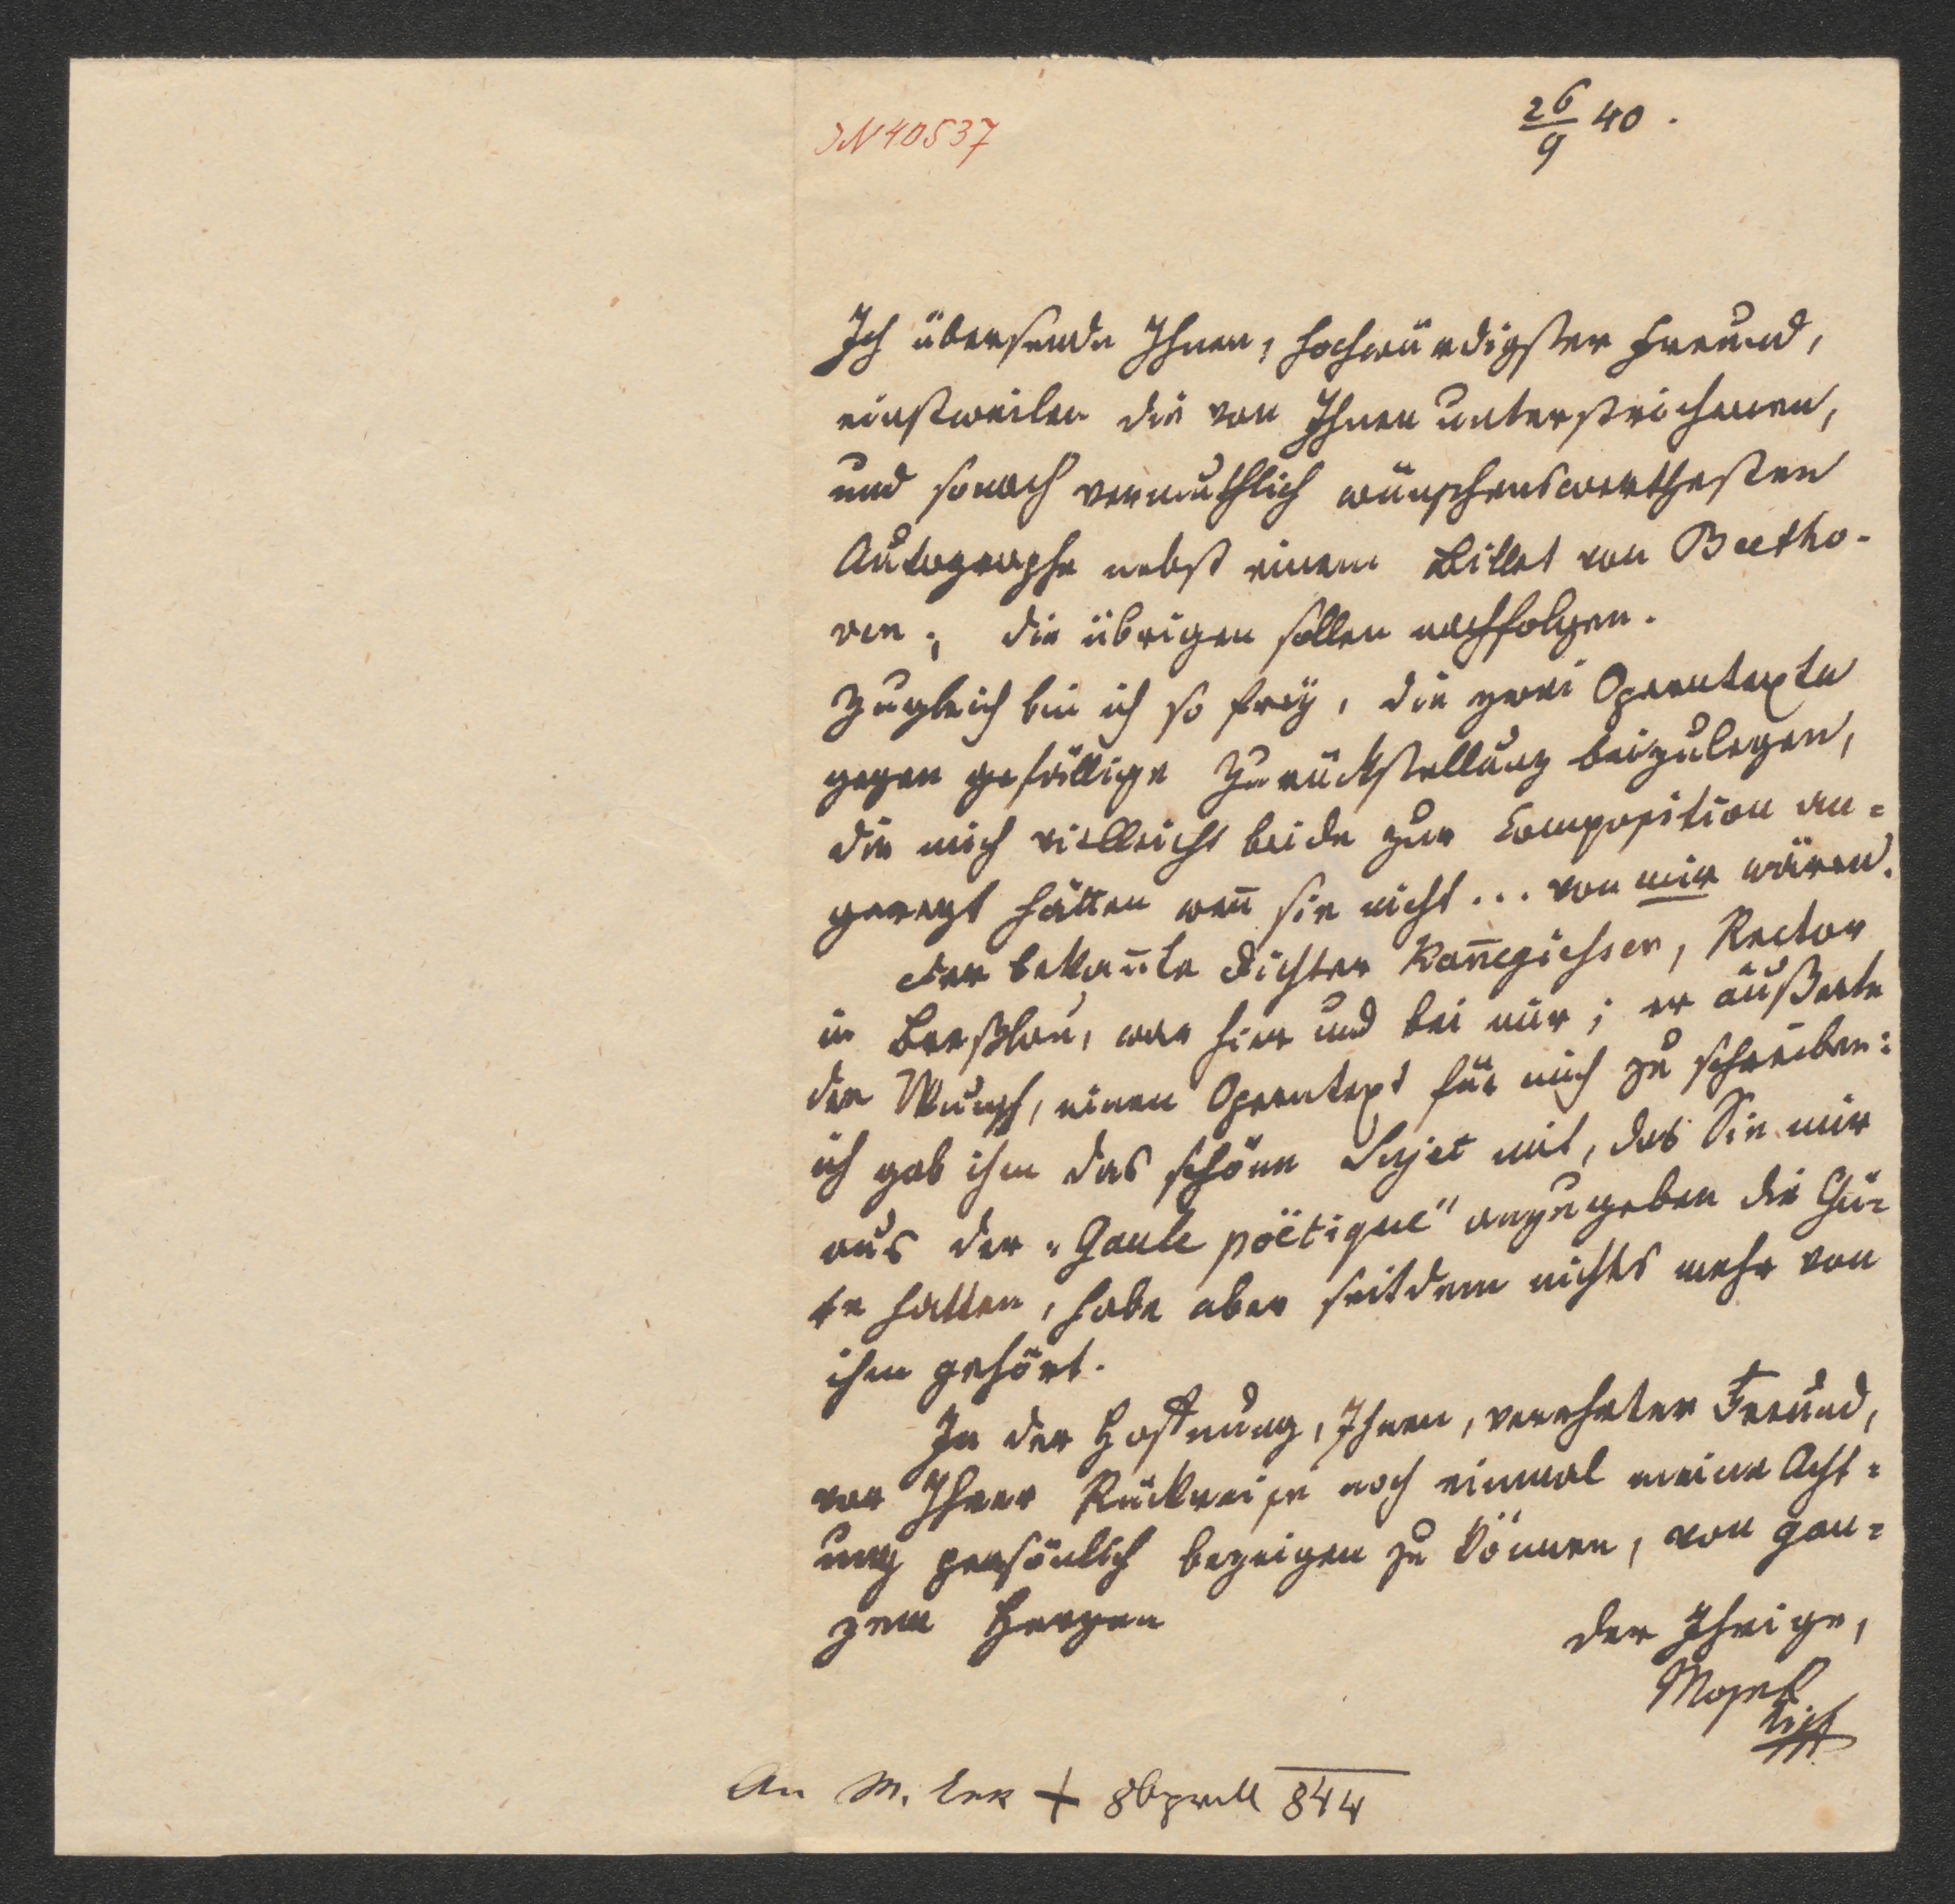 IN 40537
26/9 40.
Ich übersende Ihnen, hochwürdigster Freund,
einstweilen die von Ihnen unterstrichenen,
und sonach vermuthlich wünschenswerthesten
Autographe nebst einem Billet von Beetho-
ven; die übrigen sollen nachfolgen.
Zugleich bin ich so frey, die zwei Operntexte
gegen gefällige Zurückstellung beizulegen,
die mich vielleicht beide zur Composition an=
geregt hätten wen̄ sie nicht... von mir wären.
Der bekan̄te Dichter Kan̄egiehser, Rector
in Breßlau, war hier und bei mir; er äußerte
den Wunsch, einen Operntext für mich zu schreiben:
ich gab ihm das schöne Sujet mit, das Sie mir
aus der „Gaule poëtique" anzugeben die Gü=
te hatten, habe aber seitdem nichts mehr von
ihm gehört.
In der Hoffnung, Ihnen, verehrter Freund,
vor Ihrer Rückreise noch einmal meine Acht=
ung persönlich bezeigen zu können, von gan=
zem Herzen
der Ihrige,
Mosel
An M. Enk + 8 April 844